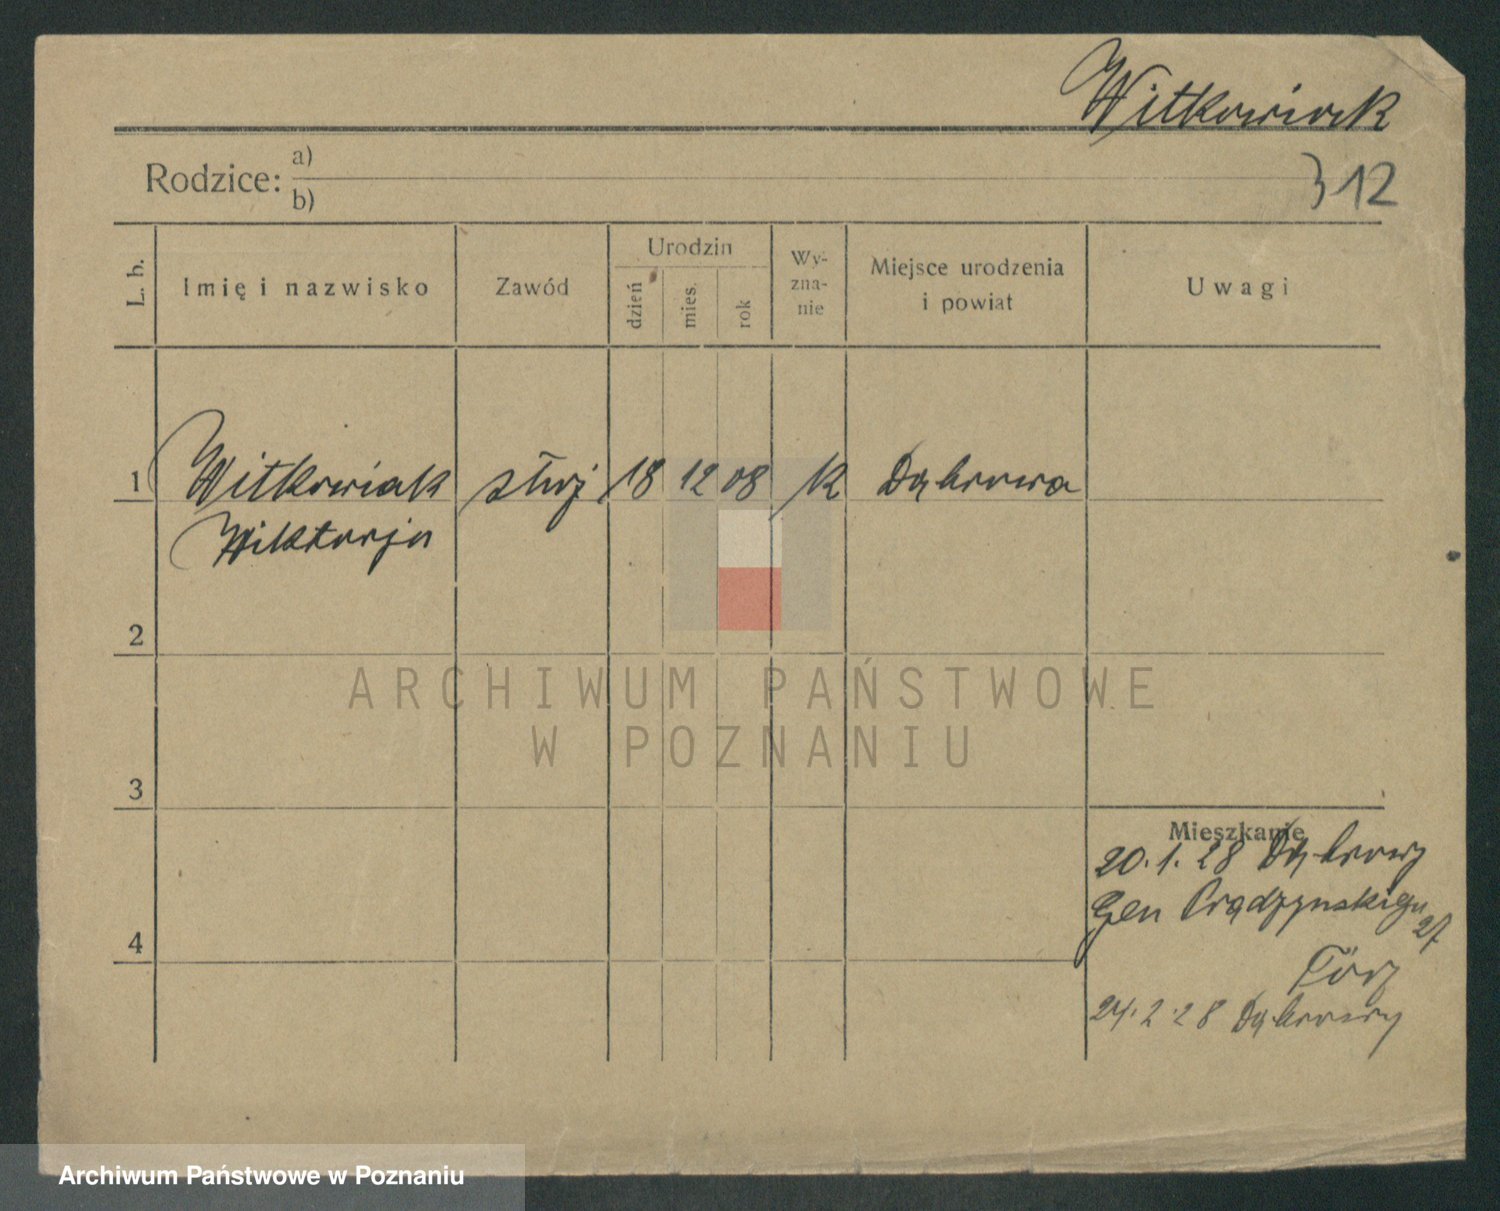 Witkowiak
Rodzice: a)
b)
312
L. b.
Imię i nazwisko
Zawód
Urodzin
dzień
mies.
rok
Wy-
zna-
nie
Miejsce urodzenia
i powiat
Uwagi
1 Witkowiak służ 18 12 08 K Dąbrowa
Wiktorja
2
ARCHIWUM PAŃSTWOWE
W POZNANIU
3
Mieszkanie
20.1.28 Dąbrowy
Gen Prądzynskiego
27
4
24.2.28 Dąbrowy
Archiwum Państwowe w Poznaniu